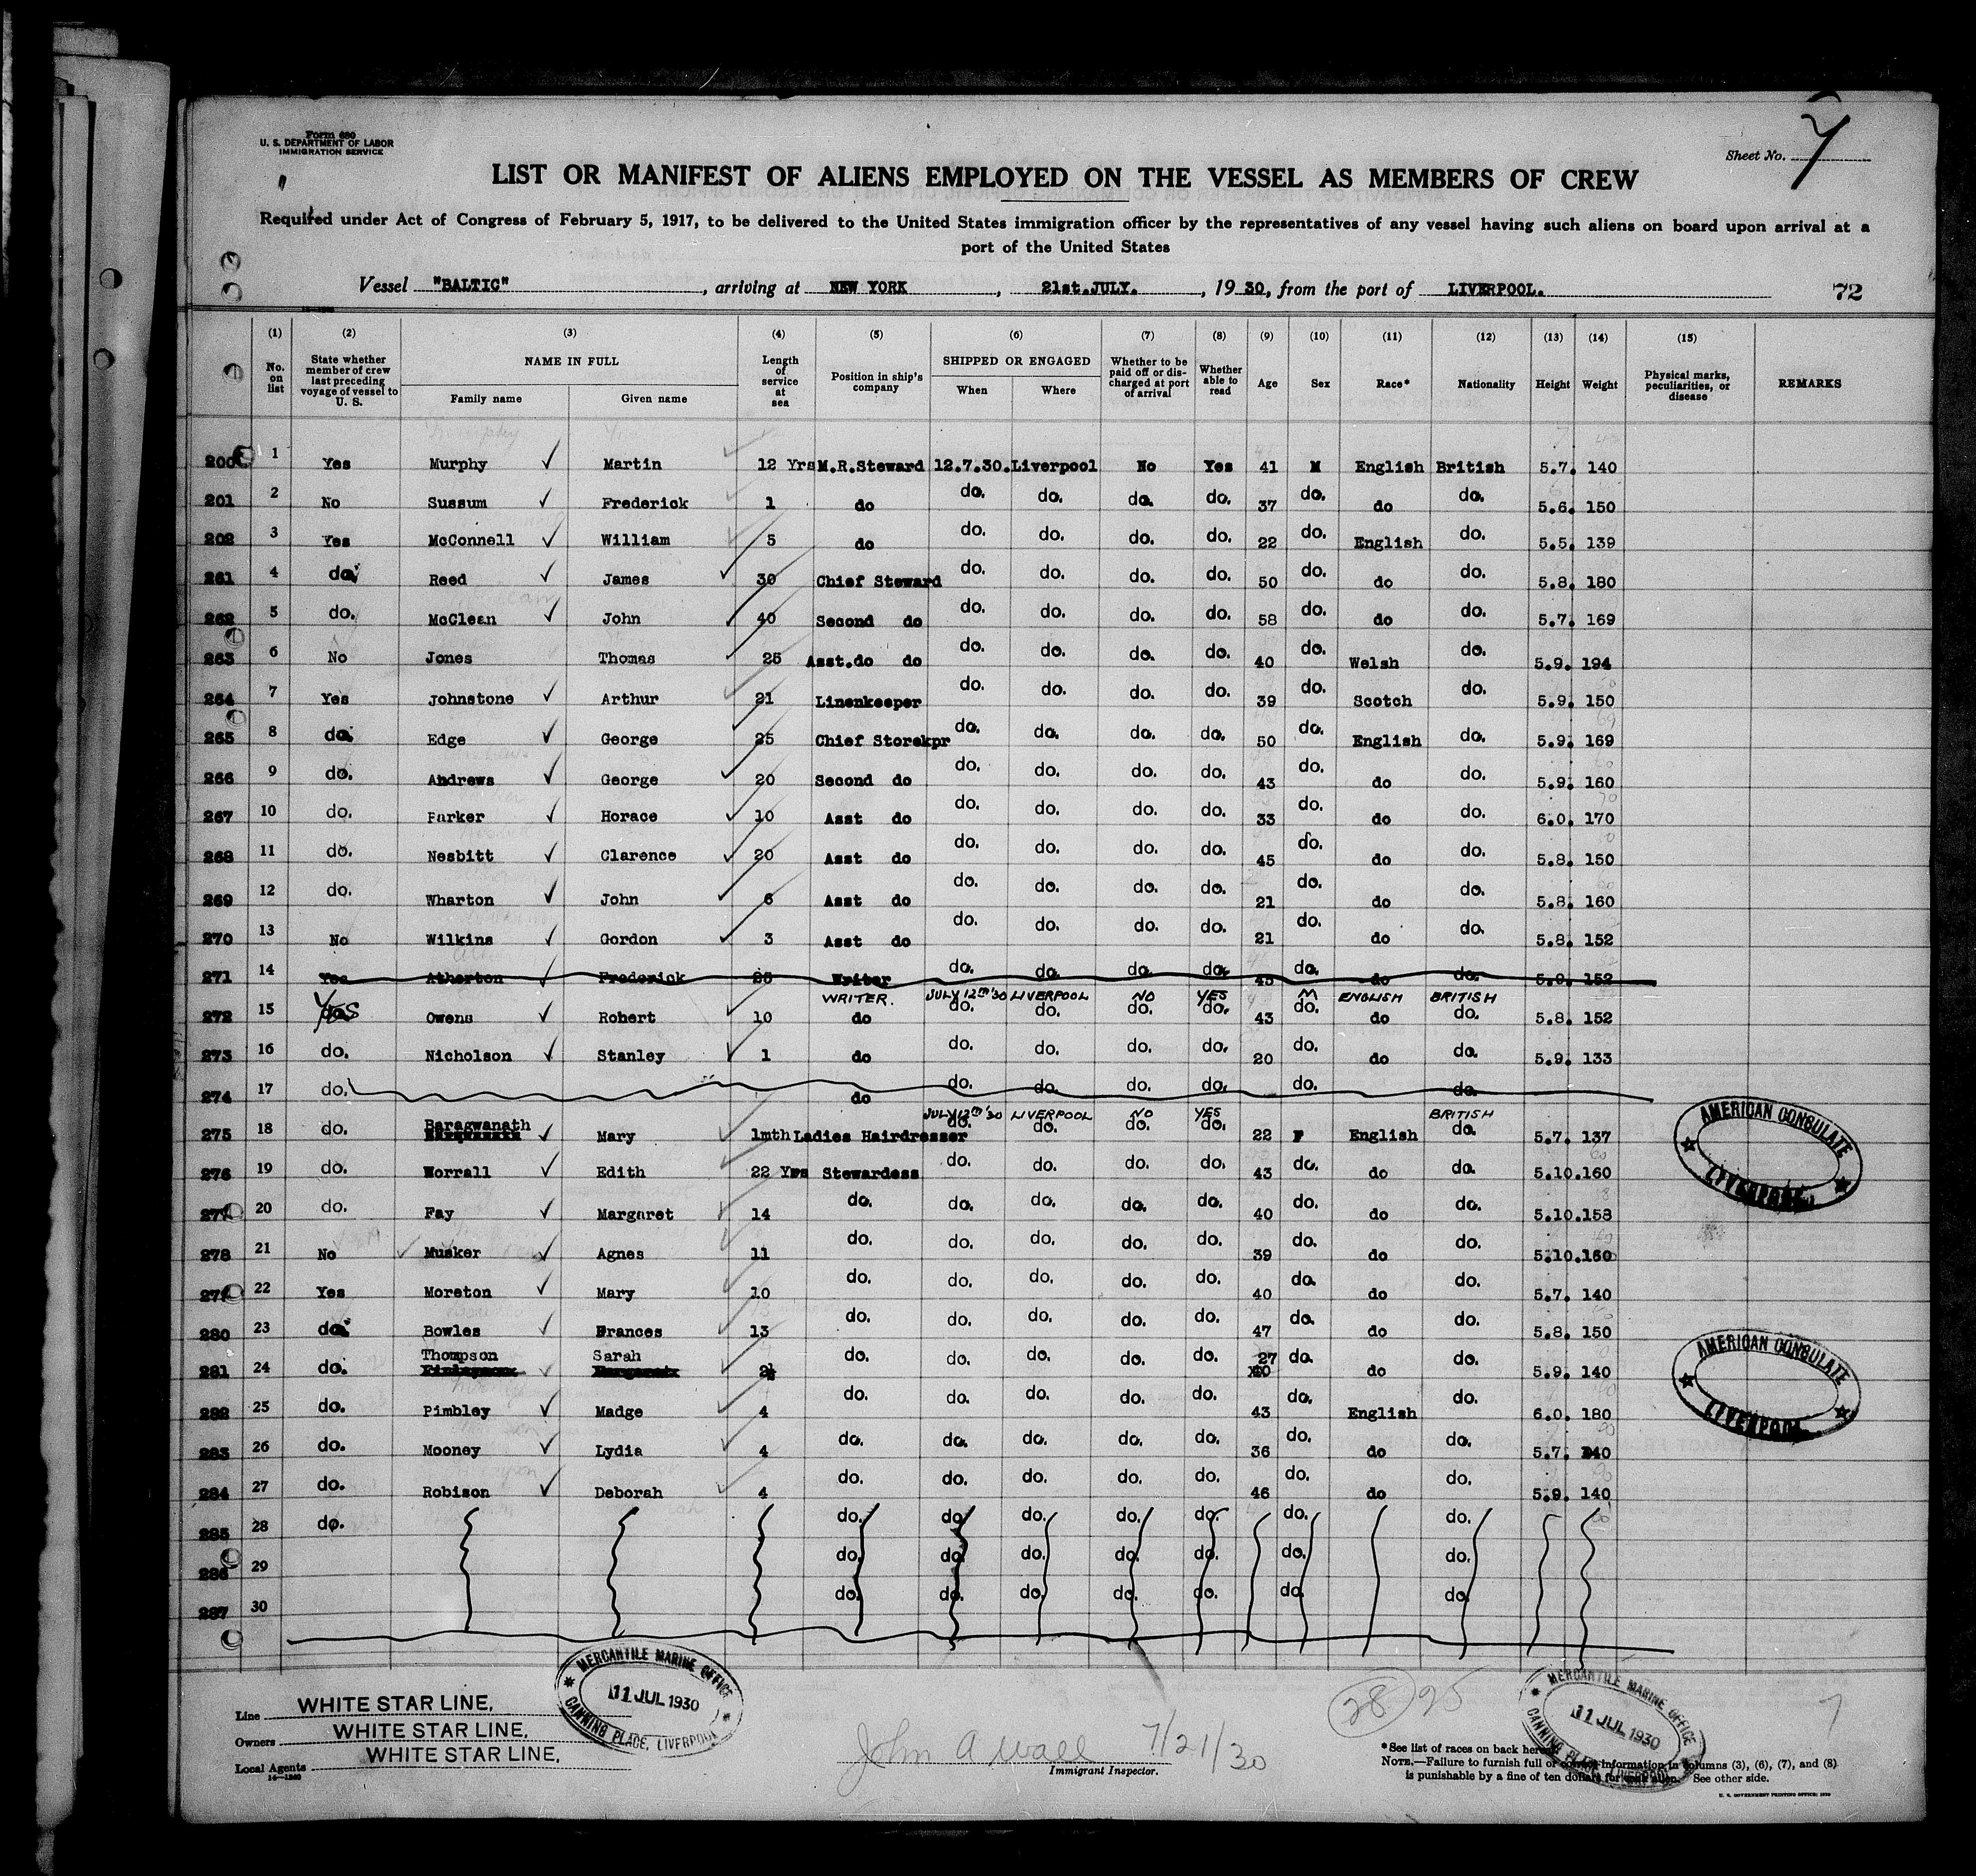 Form 680
U. S. DEPARTMENT OF LABOR
IMMIGRATION SERVICE
Sheet No. 7
LIST OR MANIFEST OF ALIENS EMPLOYED ON THE VESSEL AS MEMBERS OF CREW
Required under Act of Congress of February 5, 1917, to be delivered to the United States immigration officer by the representatives of any vessel having such aliens on board upon arrival at a
port of the United States
Vessel "BALTIC", arriving at NEW YORK, 21st.JULY., 19 30, from the port of LIVERPOOL. 72
(1) (2) (3) (4) (5) (6) (7) (8) (9) (10) (11) (12) (13) (14) (15)
No. on list State whether member of crew last preceding voyage of vessel to U. S. NAME IN FULL Family name Given name Length of service at sea Position in ship's company SHIPPED OR ENGAGED When Where Whether to be paid off or discharged at port of arrival Whether able to read Age Sex Race* Nationality Height Weight Physical marks, peculiarities, or disease REMARKS
200 1 Yes Murphy Martin 12 Yrs M.R.Steward 12.7.30. Liverpool No Yes 41 M English British 5.7. 140
201 2 No Sussum Frederick 1 do do. do. do. do. 37 do. do do. 5.6. 150
202 3 Yes McConnell William 5 do do. do. do. do. 22 do. English do. 5.5. 139
261 4 do. Reed James 30 Chief Steward do. do. do. do. 50 do. do do. 5.8. 180
262 5 do. McClean John 40 Second do do. do. do. do. 58 do. do do. 5.7. 169
263 6 No Jones Thomas 25 Asst.do do do. do. do. do. 40 do. Welsh do. 5.9. 194
264 7 Yes Johnstone Arthur 21 Linenkeeper do. do. do. do. 39 do. Scotch do. 5.9. 150
265 8 do. Edge George 25 Chief Storekpr do. do. do. do. 50 do. English do. 5.9. 169
266 9 do. Andrews George 20 Second do do. do. do. do. 43 do. do do. 5.9. 160
267 10 do. Parker Horace 10 Asst do do. do. do. do. 33 do. do do. 6.0. 170
268 11 do. Nesbitt Clarence 20 Asst do do. do. do. do. 45 do. do do. 5.8. 150
269 12 do. Wharton John 6 Asst do do. do. do. do. 21 do. do do. 5.8. 160
270 13 No Wilkins Gordon 3 Asst do do. do. do. do. 21 do. do do. 5.8. 152
271 14 Yes Atherton Frederick 25 Writer do. do. do. do. 45 do. do do. 5.9. 152
WRITER. JULY 12th '30 LIVERPOOL NO YES M ENGLISH BRITISH
272 15 YES Owens Robert 10 do do. do. do. do. 43 do. do do. 5.8. 152
273 16 do. Nicholson Stanley 1 do do. do. do. do. 20 do. do do. 5.9. 133
274 17 do. do do. do. do. do. do. do.
JULY 12th '30 LIVERPOOL NO YES BRITISH
275 18 do. Baragwanath Mary 1mth Ladies Hairdresser do. do. do. do. 22 F English do. 5.7. 137
276 19 do. Worrall Edith 22 Yrs Stewardess do. do. do. do. 43 do. do do. 5.10. 160
277 20 do. Fay Margaret 14 do. do. do. do. do. 40 do. do do. 5.10. 158
278 21 No Musker Agnes 11 do. do. do. do. do. 39 do. do do. 5.10. 160
279 22 Yes Moreton Mary 10 do. do. do. do. do. 40 do. do do. 5.7. 140
280 23 do. Bowles Frances 13 do. do. do. do. do. 47 do. do do. 5.8. 150
281 24 do. Thompson Sarah do. do. do. do. do. 27 do. do do. 5.9. 140
282 25 do. Pimbley Madge 4 do. do. do. do. do. 43 do. English do. 6.0. 180
283 26 do. Mooney Lydia 4 do. do. do. do. do. 36 do. do do. 5.7. 140
284 27 do. Robison Deborah 4 do. do. do. do. do. 46 do. do do. 5.9. 140
285 28 do. do. do. do. do. do. do. do.
286 29 do. do. do. do. do. do. do.
287 30 do. do. do. do. do. do. do.
AMERICAN CONSULATE LIVERPOOL
AMERICAN CONSULATE LIVERPOOL
Line WHITE STAR LINE,
Owners WHITE STAR LINE,
Local Agents WHITE STAR LINE,
MERCANTILE MARINE OFFICE 11 JUL 1930 CANNING PLACE, LIVERPOOL
John A Wall 7/21/30
Immigrant Inspector.
28 25
MERCANTILE MARINE OFFICE 11 JUL 1930 CANNING PLACE, LIVERPOOL
7
*See list of races on back hereof.
NOTE.—Failure to furnish full or correct information in columns (3), (6), (7), and (8)
is punishable by a fine of ten dollars for each alien. See other side.
U. S. GOVERNMENT PRINTING OFFICE: 1929